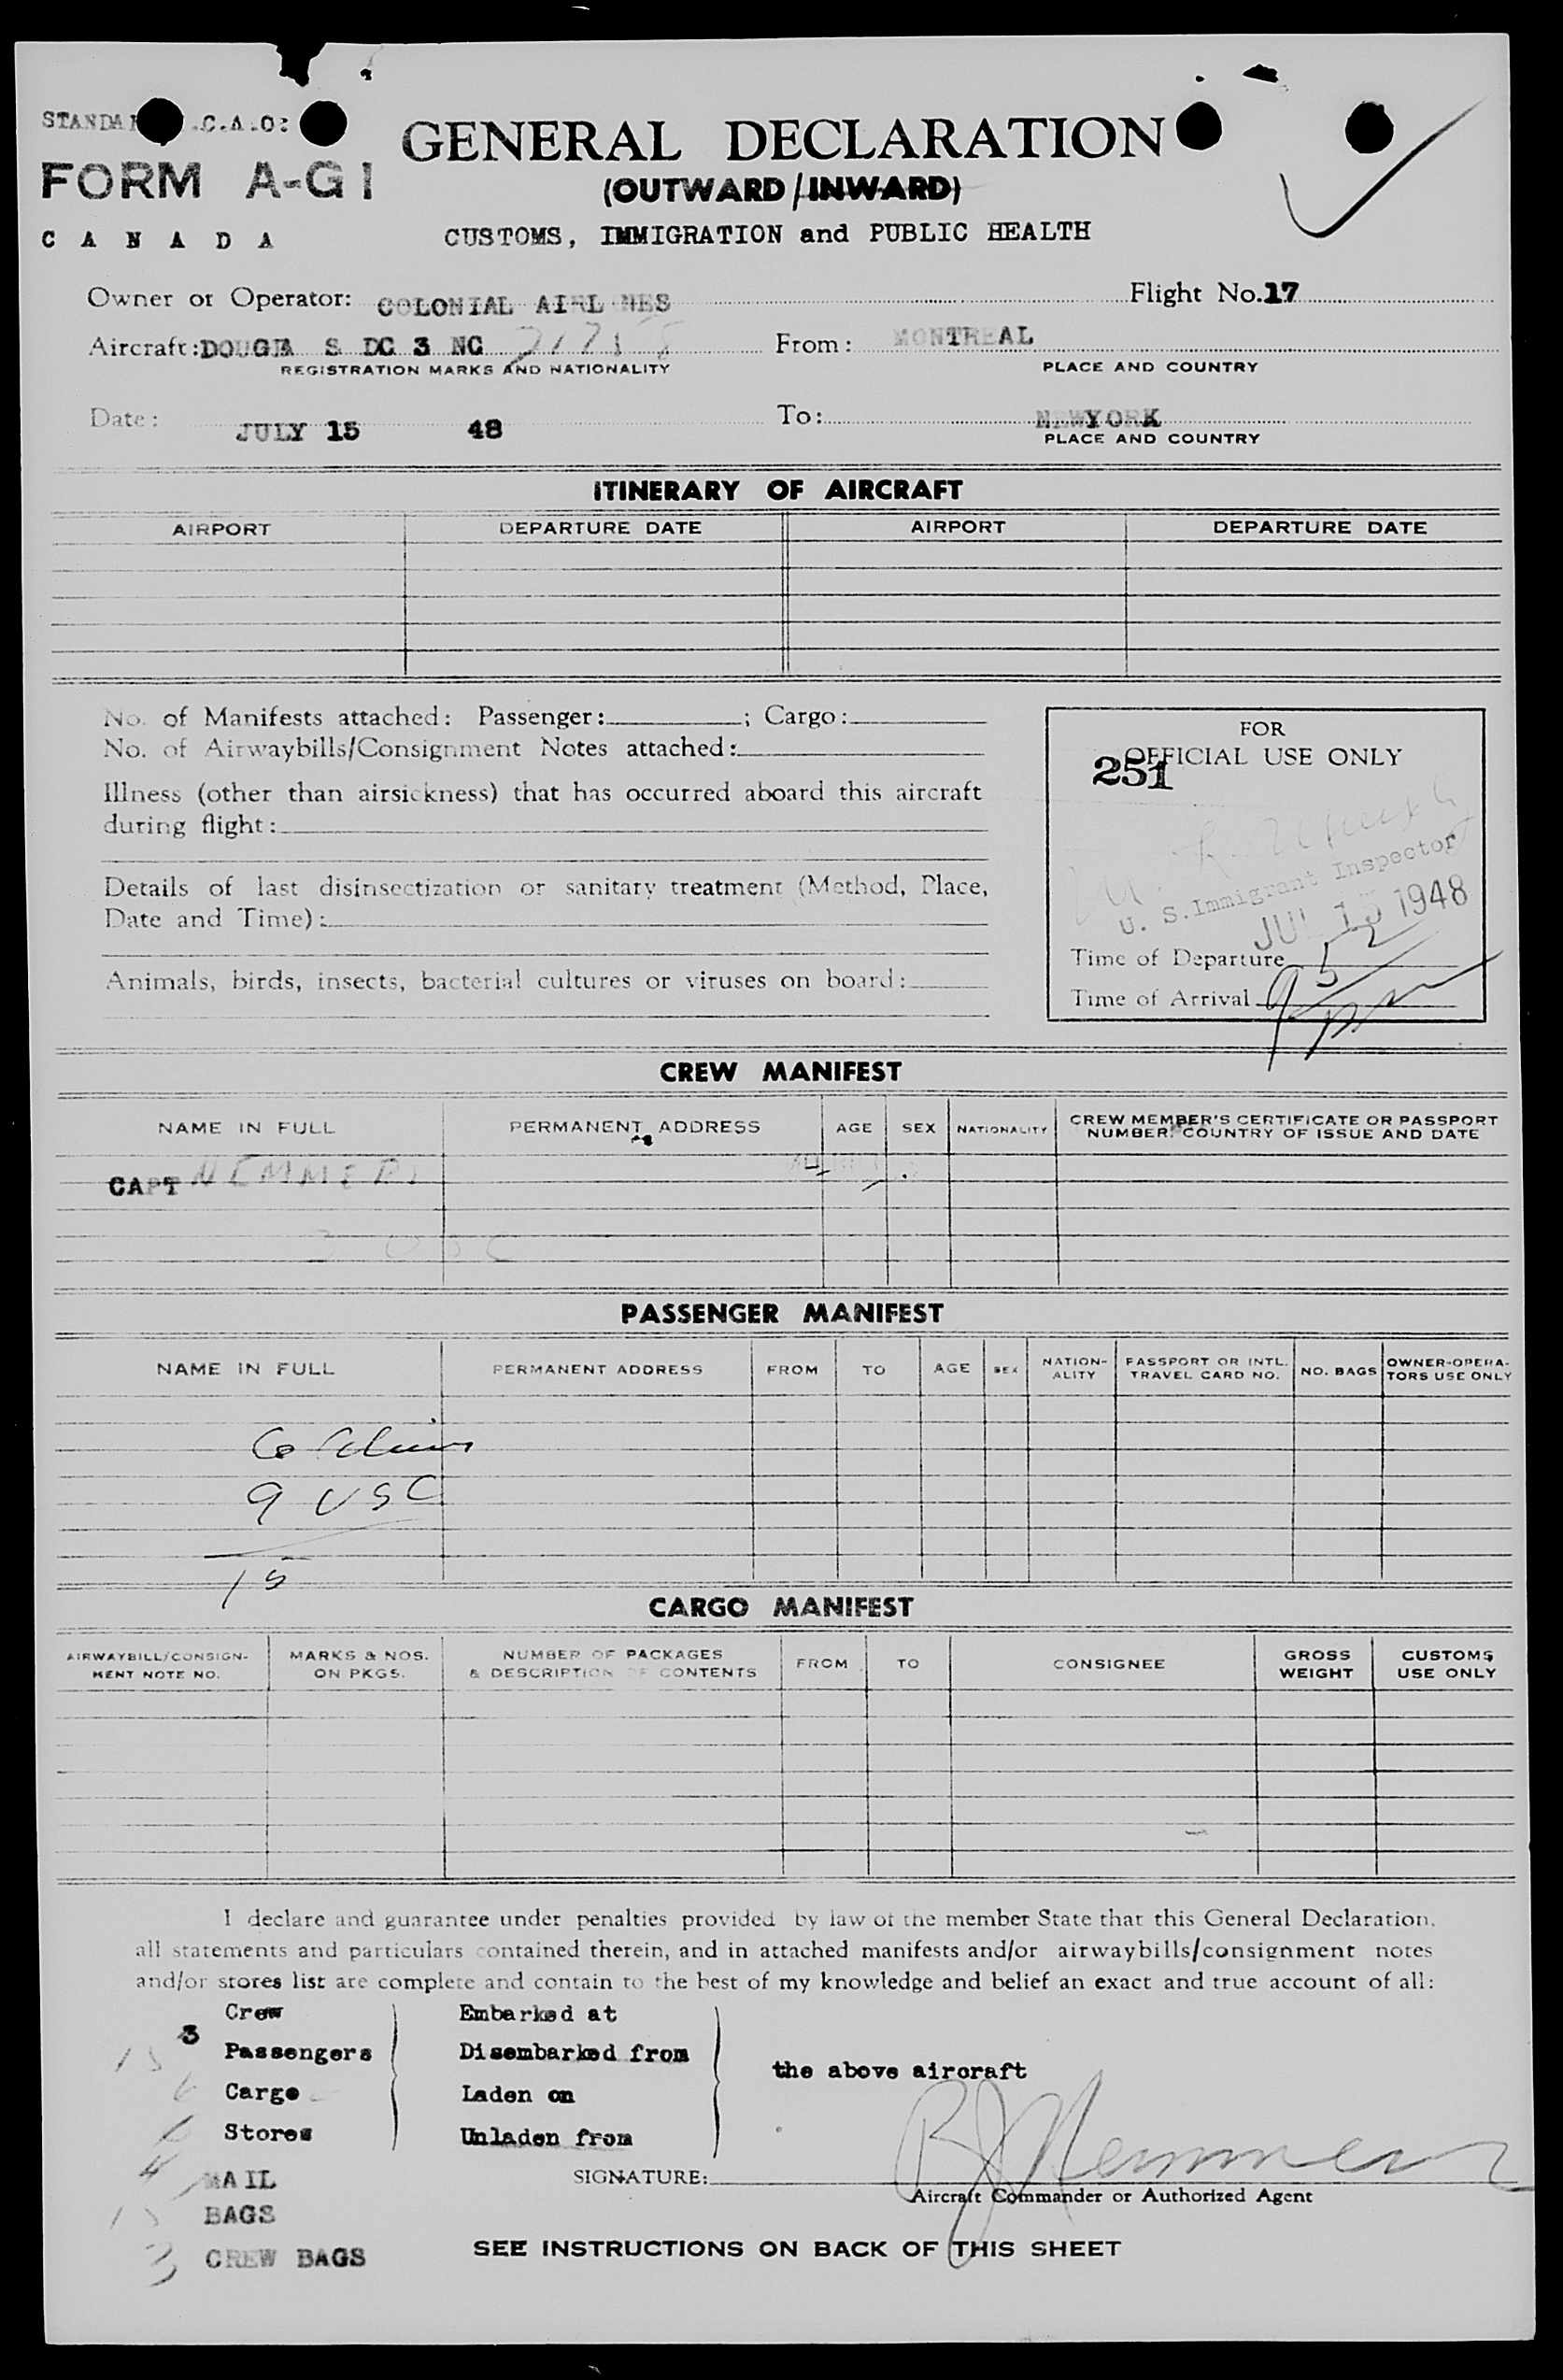 STANDA .C.A.O:
FORM A-G1
CANADA
GENERAL DECLARATION
(OUTWARD/INWARD)
CUSTOMS, IMMIGRATION and PUBLIC HEALTH
Owner or Operator: COLONIAL AIRL NES Flight No. 17
Aircraft: DOUGLA S DC 3 NC From: MONTREAL
REGISTRATION MARKS AND NATIONALITY PLACE AND COUNTRY
Date: JULY 15 48 To: NEWYORK
PLACE AND COUNTRY
ITINERARY OF AIRCRAFT
AIRPORT DEPARTURE DATE AIRPORT DEPARTURE DATE
No. of Manifests attached: Passenger: ; Cargo:
No. of Airwaybills/Consignment Notes attached:
Illness (other than airsickness) that has occurred aboard this aircraft
during flight:
Details of last disinsectization or sanitary treatment (Method, Place,
Date and Time):
Animals, birds, insects, bacterial cultures or viruses on board:
FOR
OFFICIAL USE ONLY
251
U. S. Immigrant Inspector
JUL 15 1948
Time of Departure
Time of Arrival 9 52 pm
CREW MANIFEST
NAME IN FULL PERMANENT ADDRESS AGE SEX NATIONALITY CREW MEMBER'S CERTIFICATE OR PASSPORT
NUMBER: COUNTRY OF ISSUE AND DATE
CAPT NEMMERS
3 USC
PASSENGER MANIFEST
NAME IN FULL PERMANENT ADDRESS FROM TO AGE SEX NATION-
ALITY PASSPORT OR INTL.
TRAVEL CARD NO. NO. BAGS OWNER-OPERA-
TORS USE ONLY
6 Aliens
9 USC
15
CARGO MANIFEST
AIRWAYBILL/CONSIGN-
MENT NOTE NO. MARKS & NOS.
ON PKGS. NUMBER OF PACKAGES
& DESCRIPTION OF CONTENTS FROM TO CONSIGNEE GROSS
WEIGHT CUSTOMS
USE ONLY
I declare and guarantee under penalties provided by law of the member State that this General Declaration,
all statements and particulars contained therein, and in attached manifests and/or airwaybills/consignment notes
and/or stores list are complete and contain to the best of my knowledge and belief an exact and true account of all:
3 Crew Embarked at
15 Passengers Disembarked from
the above aircraft
Cargo Laden on
Stores Unladen from
MAIL
SIGNATURE: B J Nemmers
Aircraft Commander or Authorized Agent
15 BAGS
3 CREW BAGS
SEE INSTRUCTIONS ON BACK OF THIS SHEET